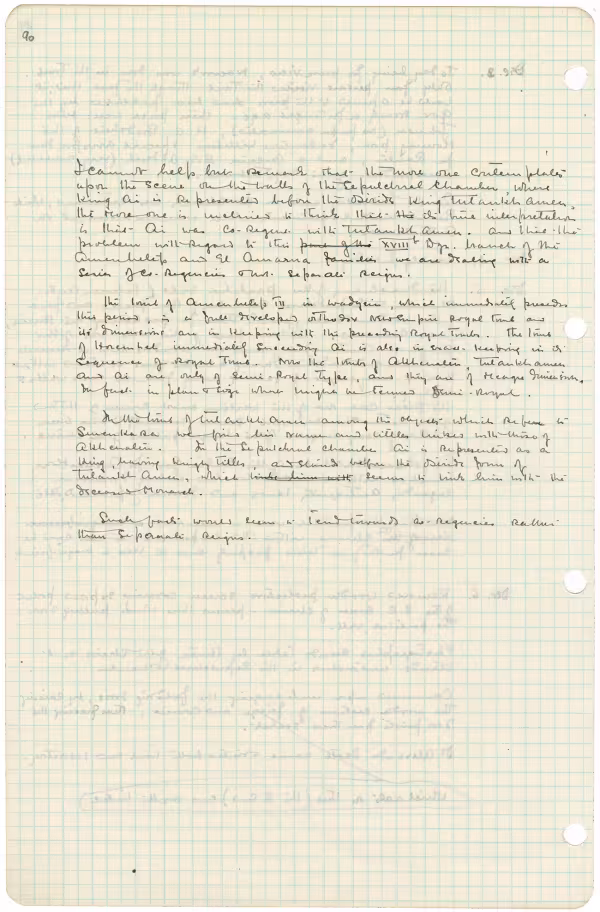 90
I cannot help but remark that the more one contemplates
upon the scene on the walls of the Sepulchral Chamber, where
King Ai is represented before the Osiride King Tutankhamen,
the more one is inclined to think that the it true interpretation
is that Ai was Co-Regent with Tutankh.Amen. And that the
problem with regard to this XVIIIth Dyn. branch of the
Amenhetep and El Amarna families we are dealing with a
series of Co-Regencies & not separate reigns.
The tomb of Amenhetep III in Wadyein, which immediately precedes
this period, is a full developed orthodox New Empire Royal tomb and
its dimensions are in keeping with the preceding Royal tombs. The tomb
of Horemheb immediately succeeding Ai is also in exact keeping in its
sequence of Royal Tombs. Now the tombs of Akhenaten, Tutankhamen
and Ai are only of Semi-Royal type, and they are of meagre dimensions.
In fact in plan & size what might be termed Semi-Royal.
In the tomb of Tutankh.Amen among the objects which refer to
Smenkkara we find his name and titles linked with those of
Akhenaten. In the Sepulchral chamber Ai is represented as a
King, having Kingly titles, and stands before the Osiride form of
Tutankh.Amen, which links him with seems to link him with the
deceased Monarch.
Such facts would seem to tend towards co-regencies rather
than separate reigns.